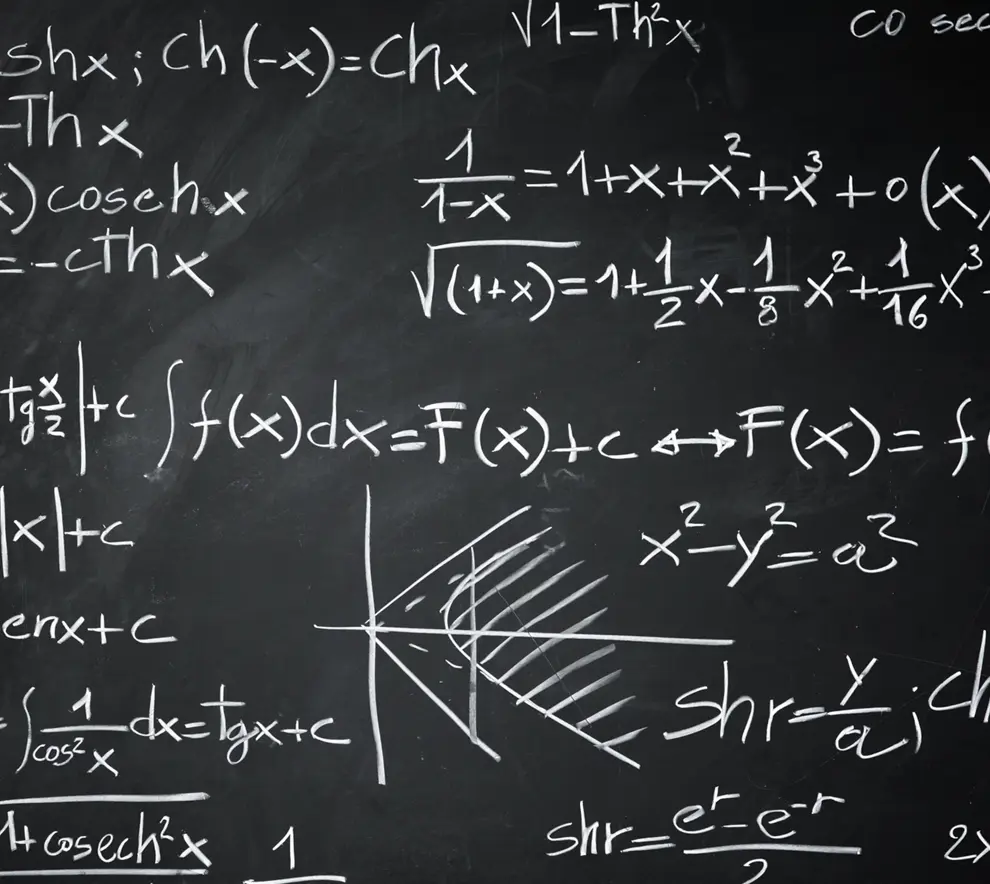 shx; Ch(-x)=Chx
√1-Th²x
co sec
-Th x
x)cosehx
=-cThx
1/1-x = 1+x+x²+x³+o(x)
√(1+x)=1+1/2x-1/8x²+1/16x³-
tg x/2|+c
∫f(x)dx=F(x)+c ↔ F(x)= f(
|x|+c
x²-y²=a²
enx+c
=∫1/cos²x dx=tgx+c
shr=y/a; ch
1+cosech²x
1
shr=eʳ-e⁻ʳ/2
2x